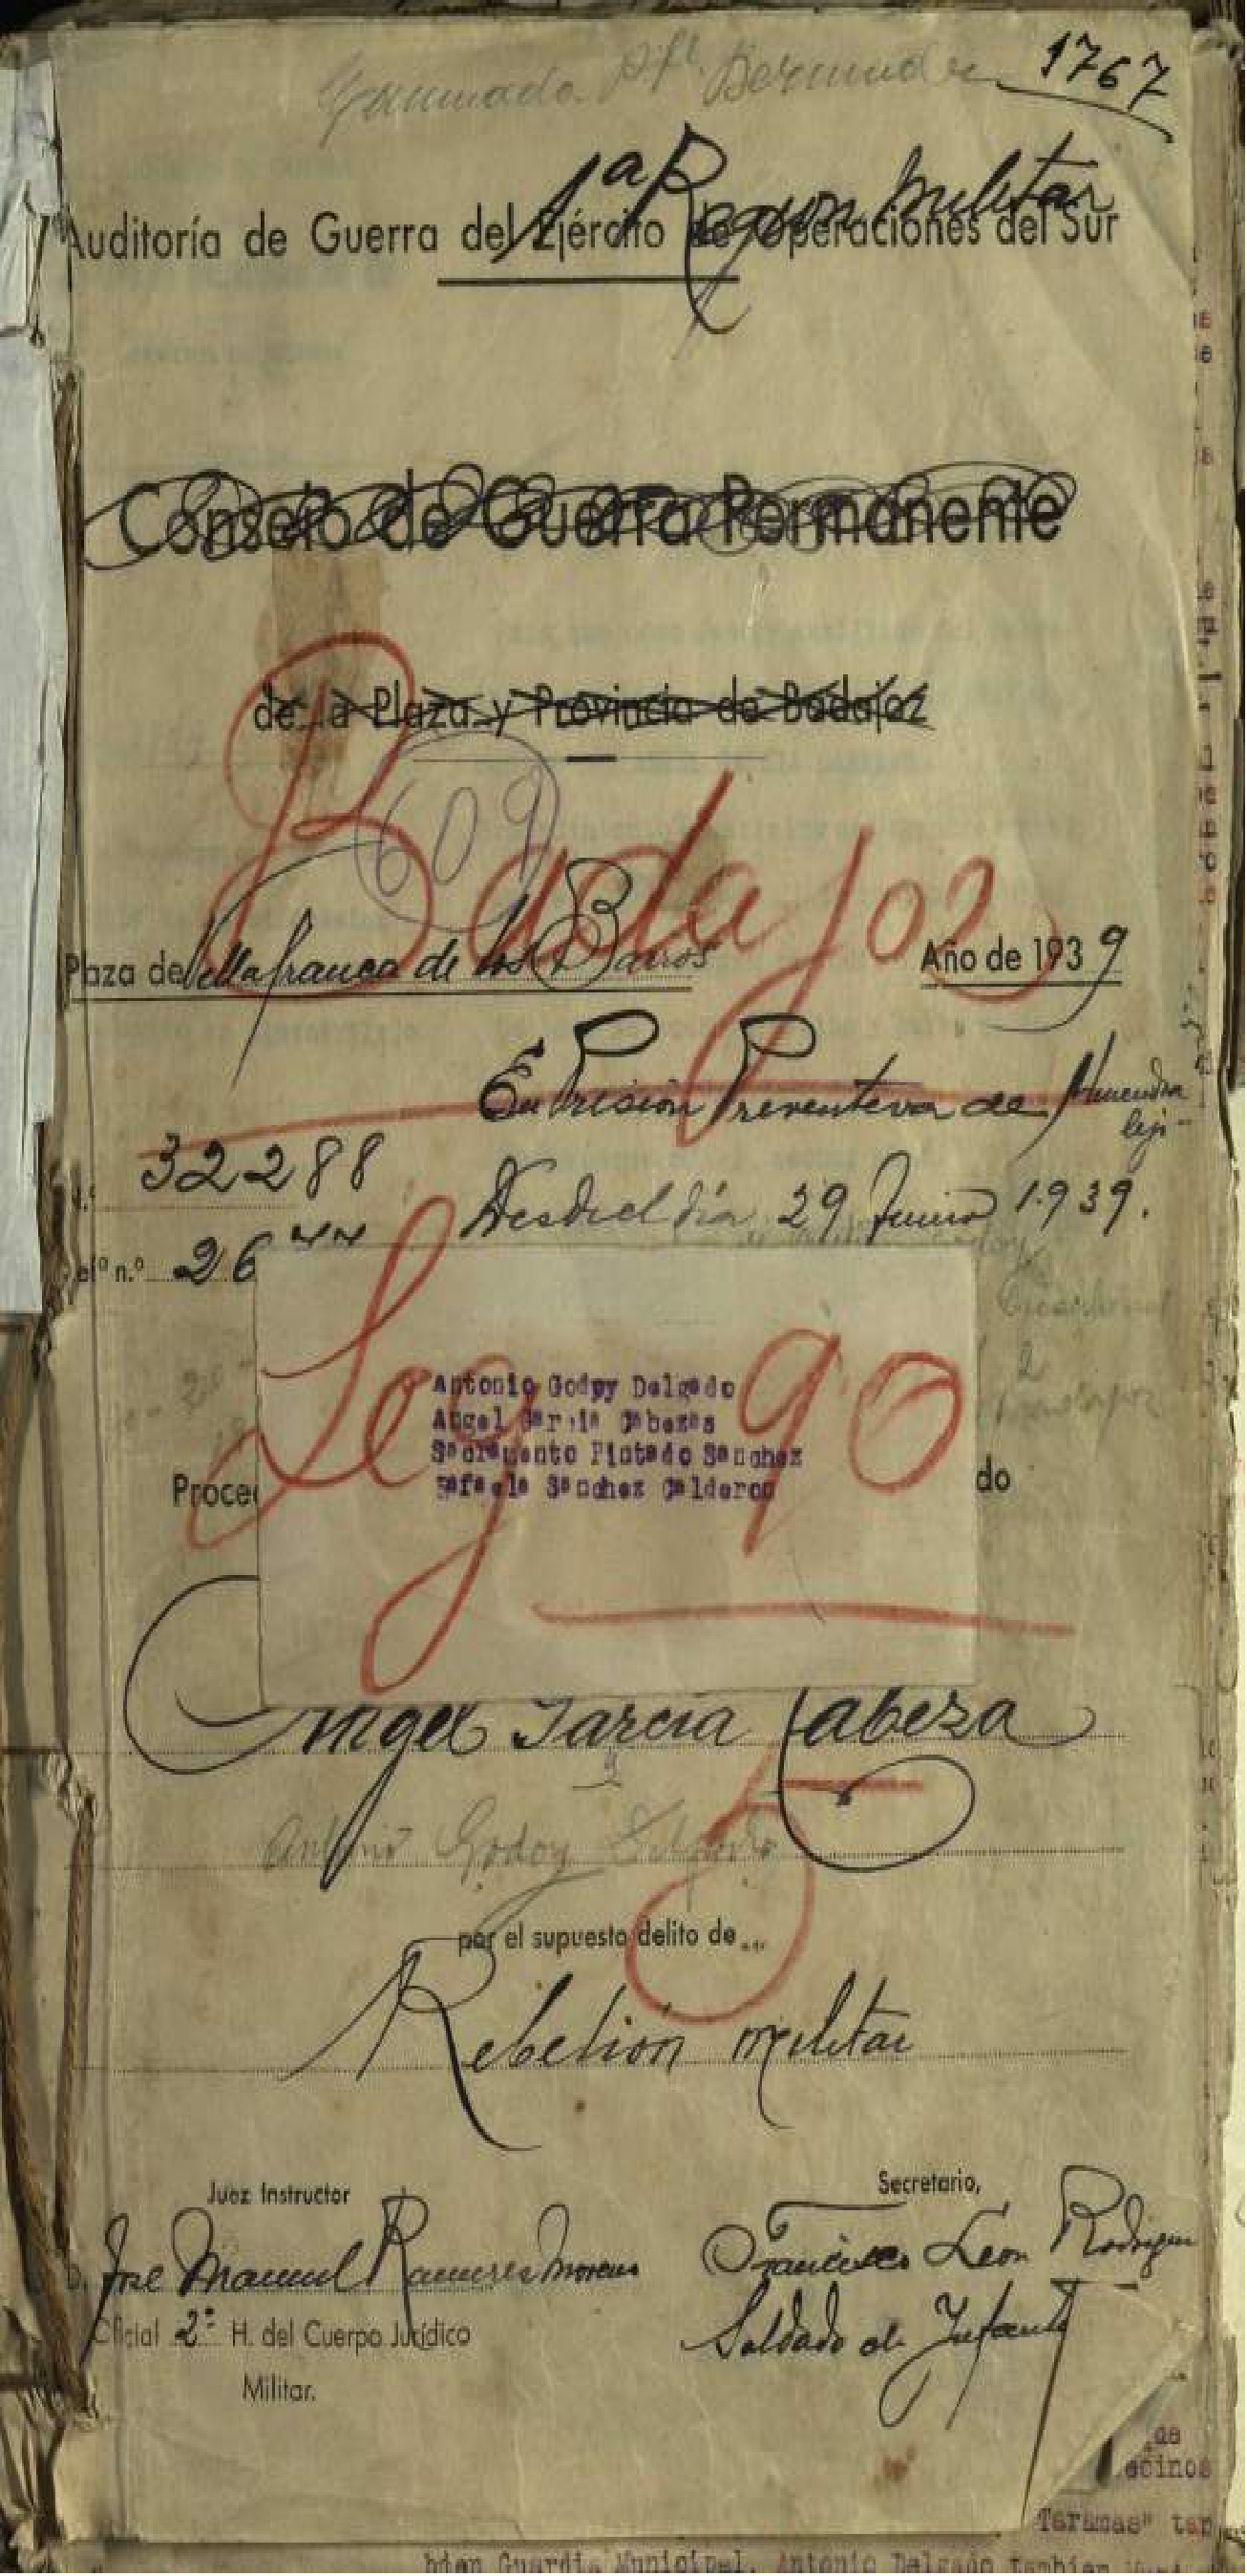 1767
1ª Region Militar
Auditoría de Guerra del Ejército de Operaciones del Sur
Consejo de Guerra Permanente
de la Plaza y Provincia de Badajoz
609
Badajoz
Plaza de Villafranca de los Barros
Año de 1939
En Prision Preventiva de Almendralejo-
32288
Desde el día 29 Junio 1.939.
n.º 26
Leg 90
Antonio Godoy Delgado
Angel Garcia Cabezas
Sacramento Pintado Sanchez
Rafaela Sanchez Calderon
Proce
do
Angel Garcia Cabeza
y
Antonio Godoy Delgado
5
por el supuesto delito de
Rebelión militar
Juez Instructor
Secretario,
D. Jose Manuel Ramirez Moreno
Francisco Leon Rodriguez
Oficial 2º H. del Cuerpo Jurídico
Militar.
Soldado de Infantª
de
ecinos
Taramas" tam
bien Guardia Municipal, Antonio Delgado tambien